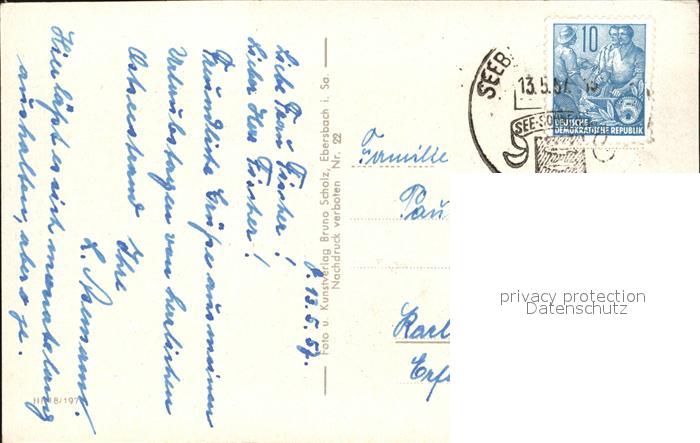 B. 13.5.57.
Liebe Frau Fischer!
Lieber Herr Fischer!
Freundliche Grüße aus meinen
Urlaubstagen von herrlichen
Ostseestrand
Ihre
L.
Hier läßt es sich monatelang
aushalten, aber o je.
Foto u. Kunstverlag Bruno Scholz, Ebersbach i. Sa.
Nachdruck verboten Nr. 22
III/18/197
Familie
Pau
Karl
Erf
SEEB
13.5.57.
SEE-SO
10
5
DEUTSCHE
DEMOKRATISCHE REPUBLIK
privacy protection
Datenschutz